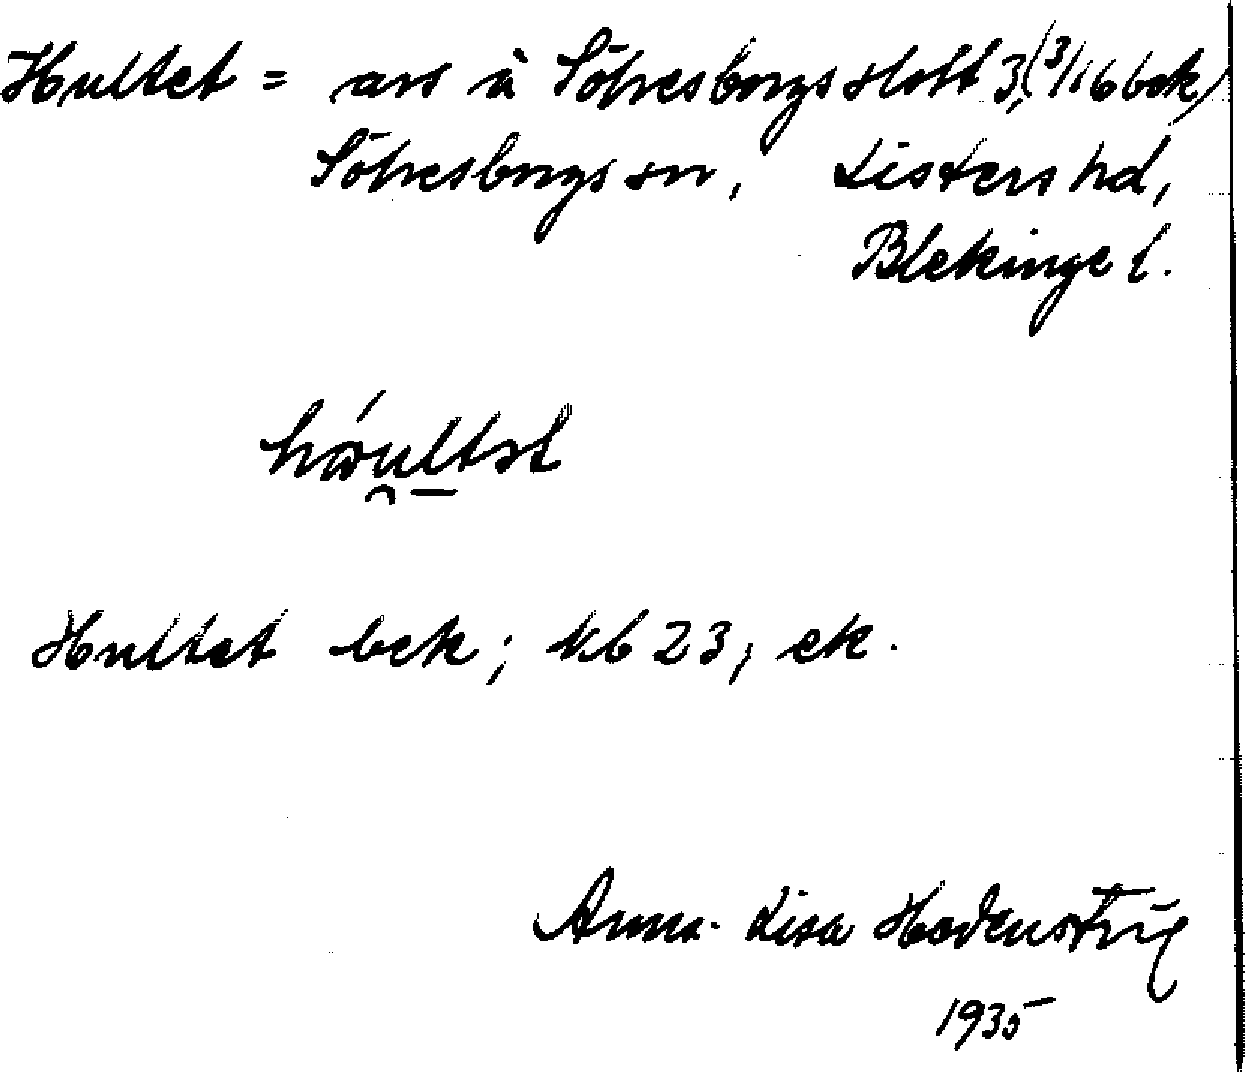 Hultet = avs å Sölvesborgs slott 3, (3/16 bek)
Sölvesborgs sn, Listers hd,
Blekinge l.
Hultet bek; kb 23, ek.
Anna-Lisa
1935